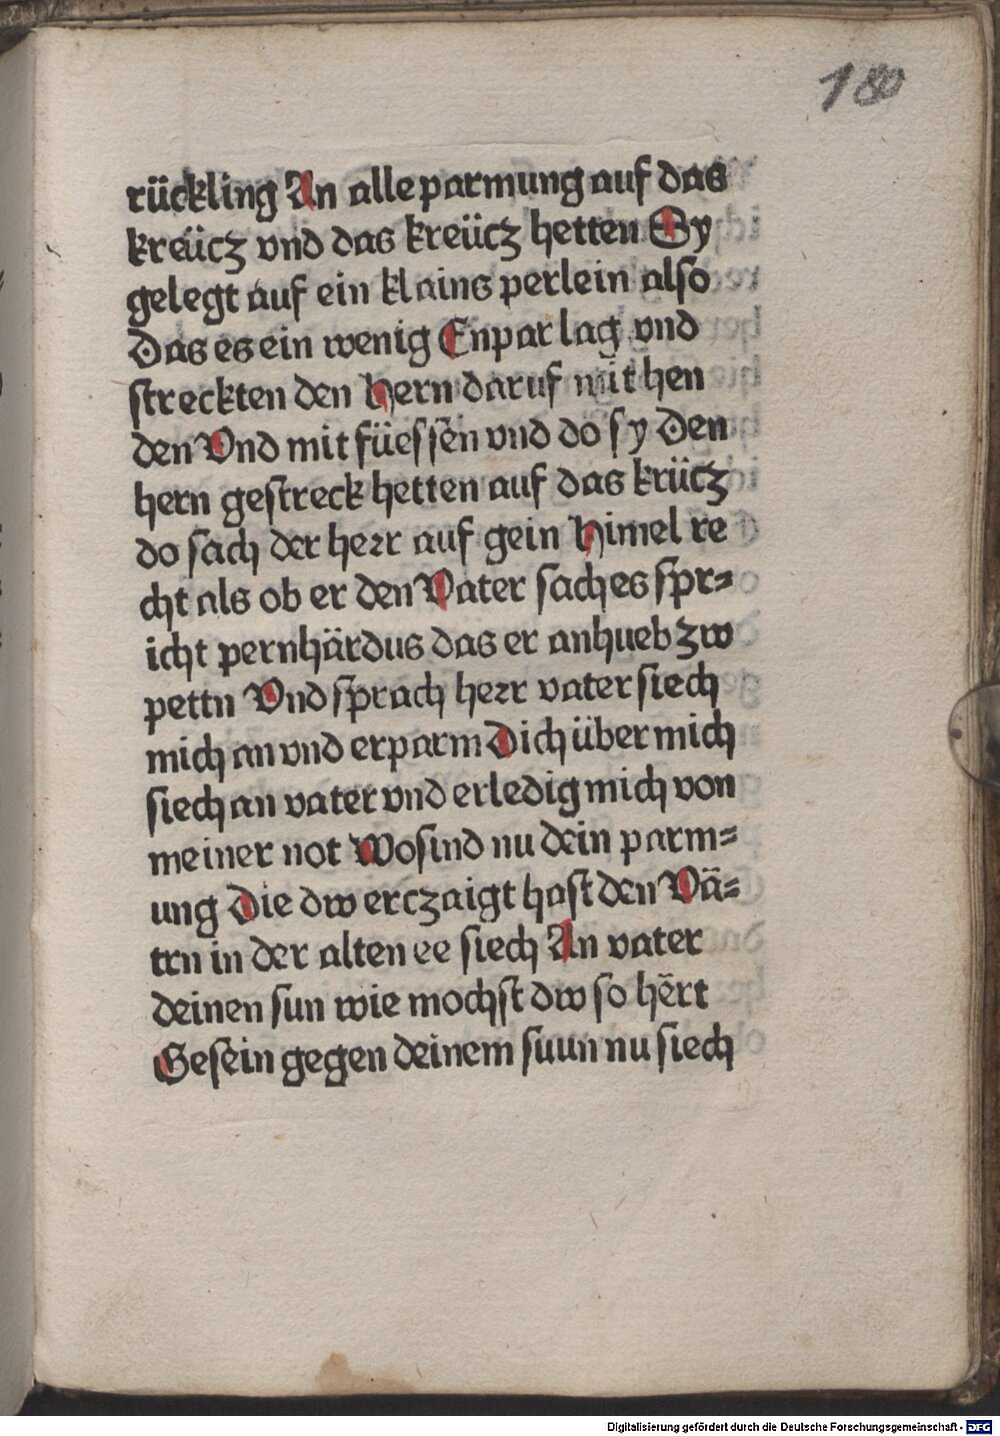 180
rückling An alle parmung auf das
kreücz vnd das kreücz hetten Sy
gelegt auf ein klains perlein also
Das es ein wenig Enpar lag vnd
streckten den Hern daruf mit hen
den Vnd mit füessen vnd do sy Den
hern gestreck hetten auf das krücz
do sach der herr auf gein Himel re
cht als ob er den Vater sach es spr=
icht pernhärdus das er anhueb zw
pettn Vnd sprach herr vater siech
mich an vnd erparm Dich über mich
siech an vater vnd erledig mich von
meiner not Wo sind nu dein parm=
ung Die dw erczaigt hast den Vä=
trn in der alten ee siech An vater
deinen sun wie mochst dw so hërt
Gesein gegen deinem suun nu siech
Digitalisierung gefördert durch die Deutsche Forschungsgemeinschaft - DFG